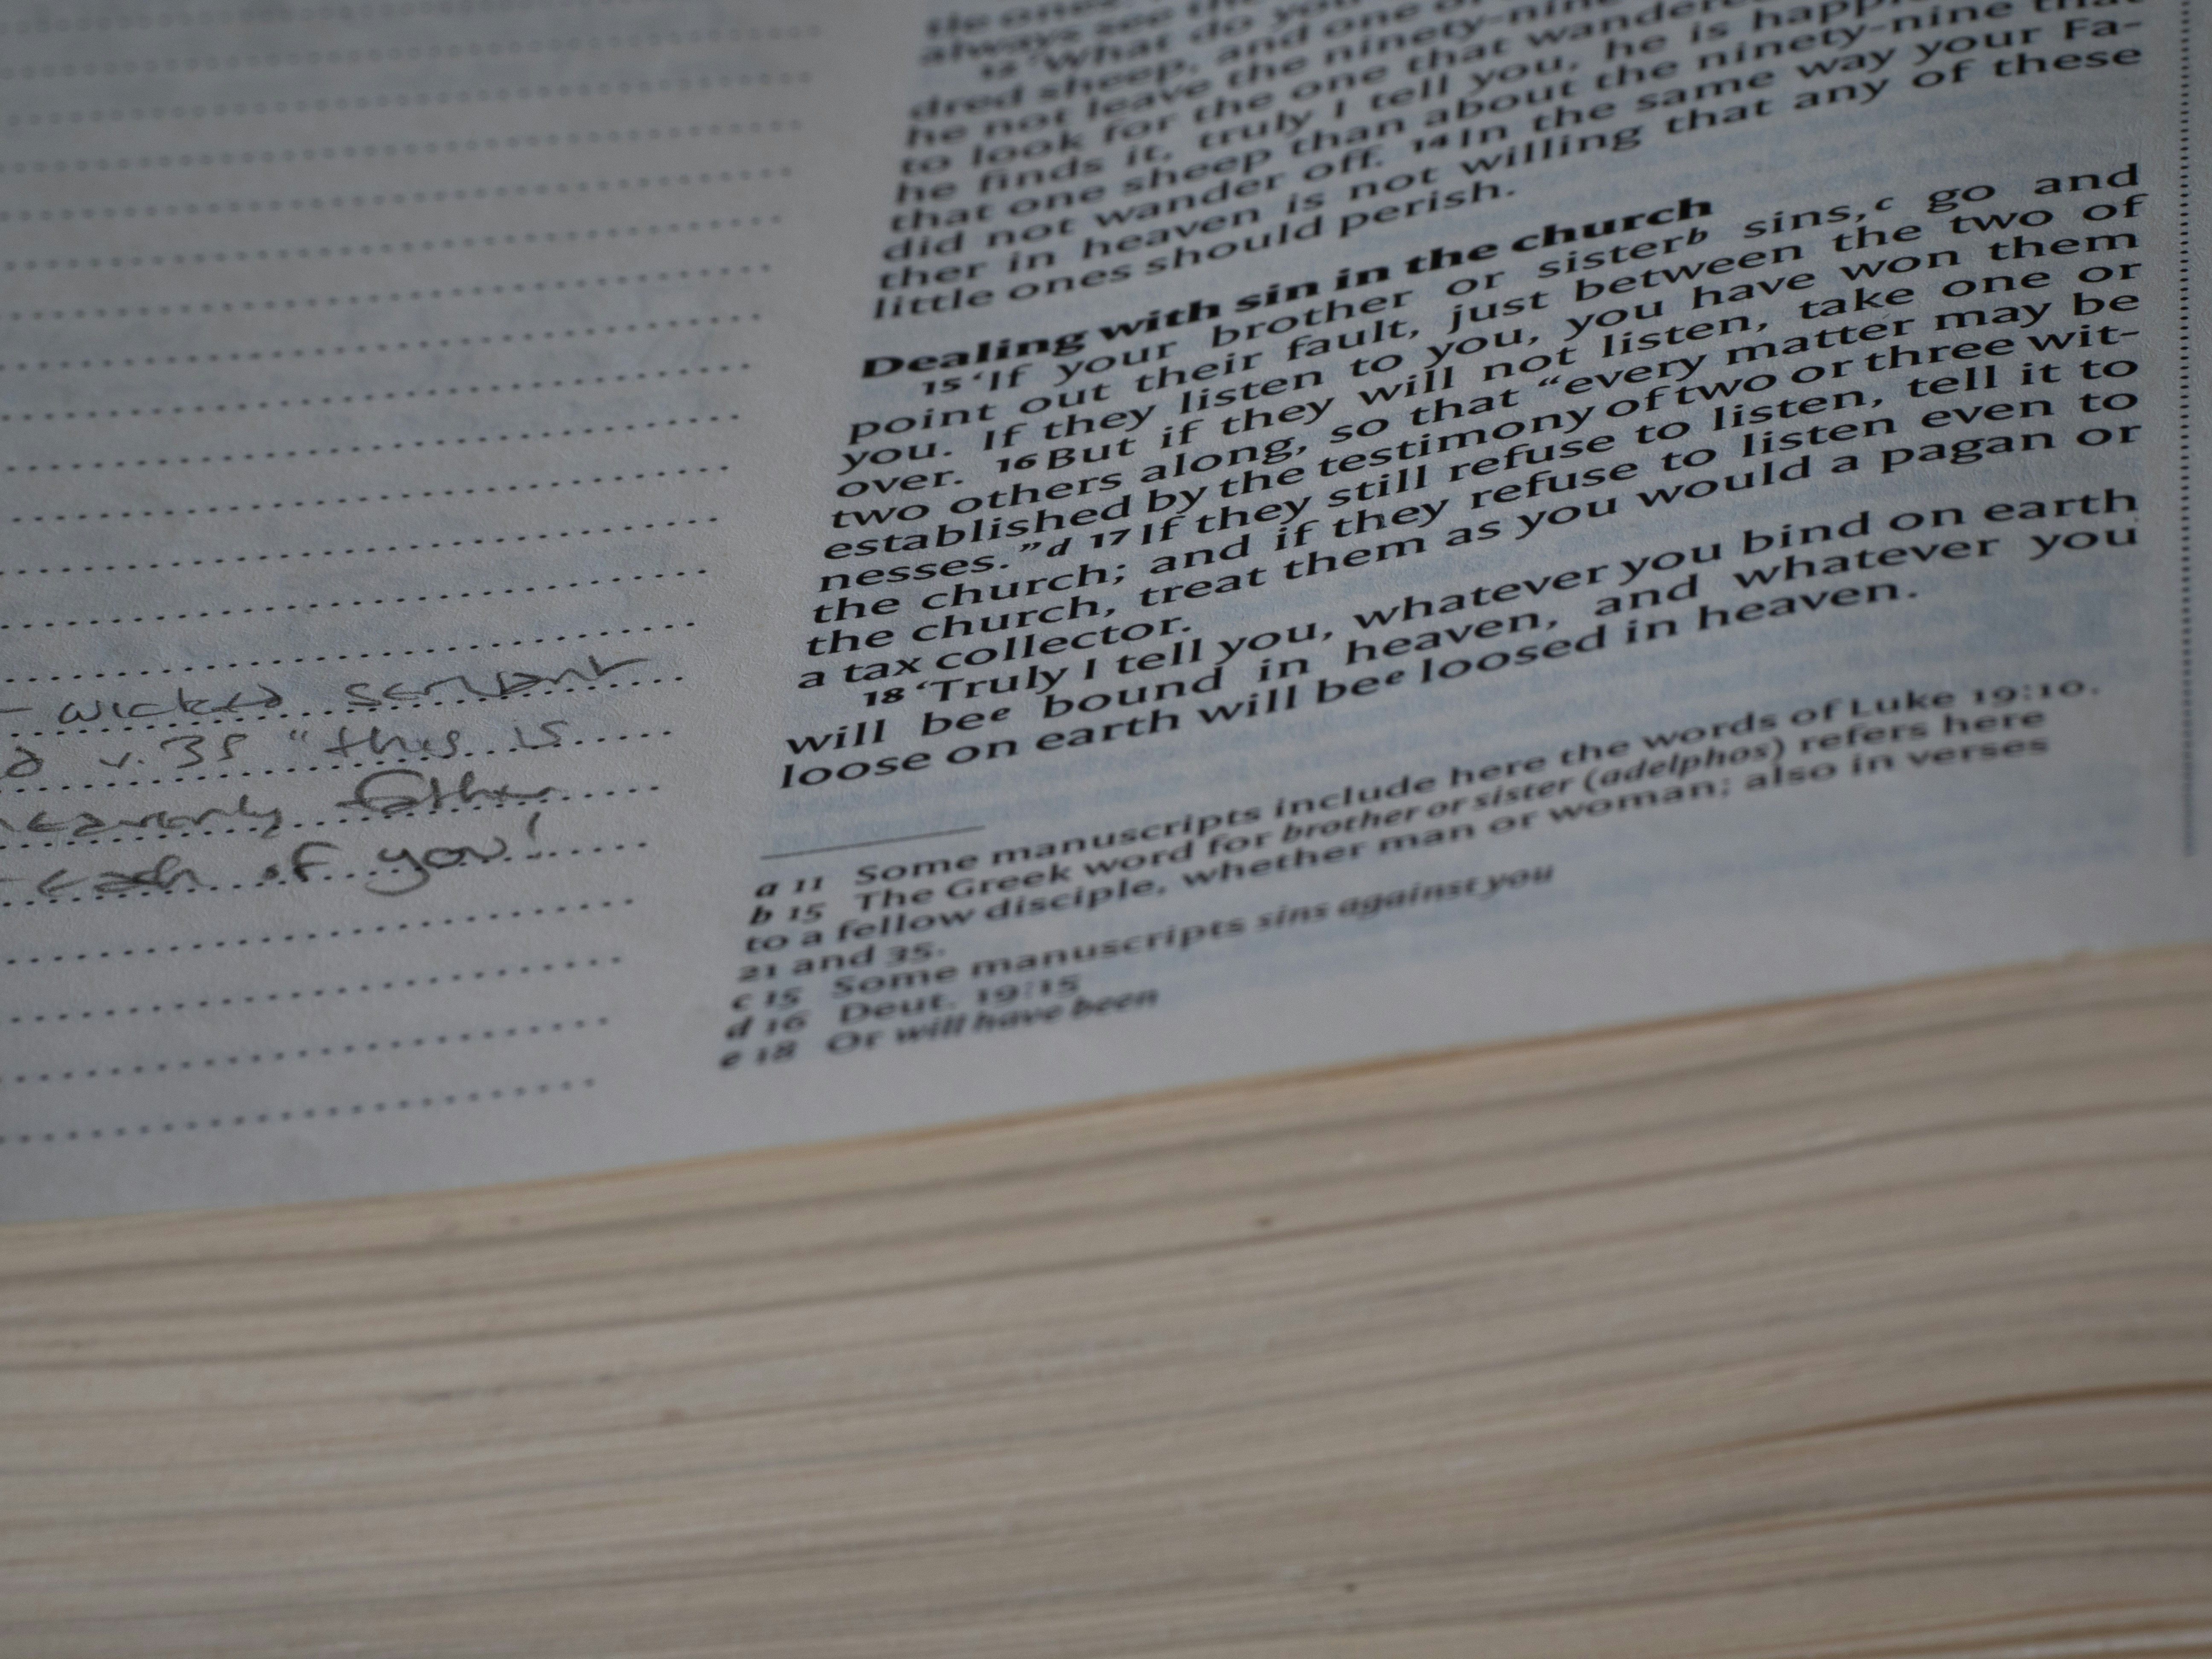 - wicked servant
v. 35 "this is
heavenly Father
each of you!
always see the
12 'What do you
dred sheep, and one of
he not leave the ninety-nine
to look for the one that wandered
he finds it, truly I tell you, he is happi
that one sheep than about the ninety-nine that
did not wander off. 14 In the same way your Fa-
ther in heaven is not willing that any of these
little ones should perish.
Dealing with sin in the church
15 'If your brother or sisterb sins,c go and
point out their fault, just between the two of
you. If they listen to you, you have won them
over. 16 But if they will not listen, take one or
two others along, so that "every matter may be
established by the testimony of two or three wit-
nesses."d 17 If they still refuse to listen, tell it to
the church; and if they refuse to listen even to
the church, treat them as you would a pagan or
a tax collector.
18 'Truly I tell you, whatever you bind on earth
will bee bound in heaven, and whatever you
loose on earth will bee loosed in heaven.
a 11 Some manuscripts include here the words of Luke 19:10.
b 15 The Greek word for brother or sister (adelphos) refers here
to a fellow disciple, whether man or woman; also in verses
21 and 35.
c 15 Some manuscripts sins against you
d 16 Deut. 19:15
e 18 Or will have been